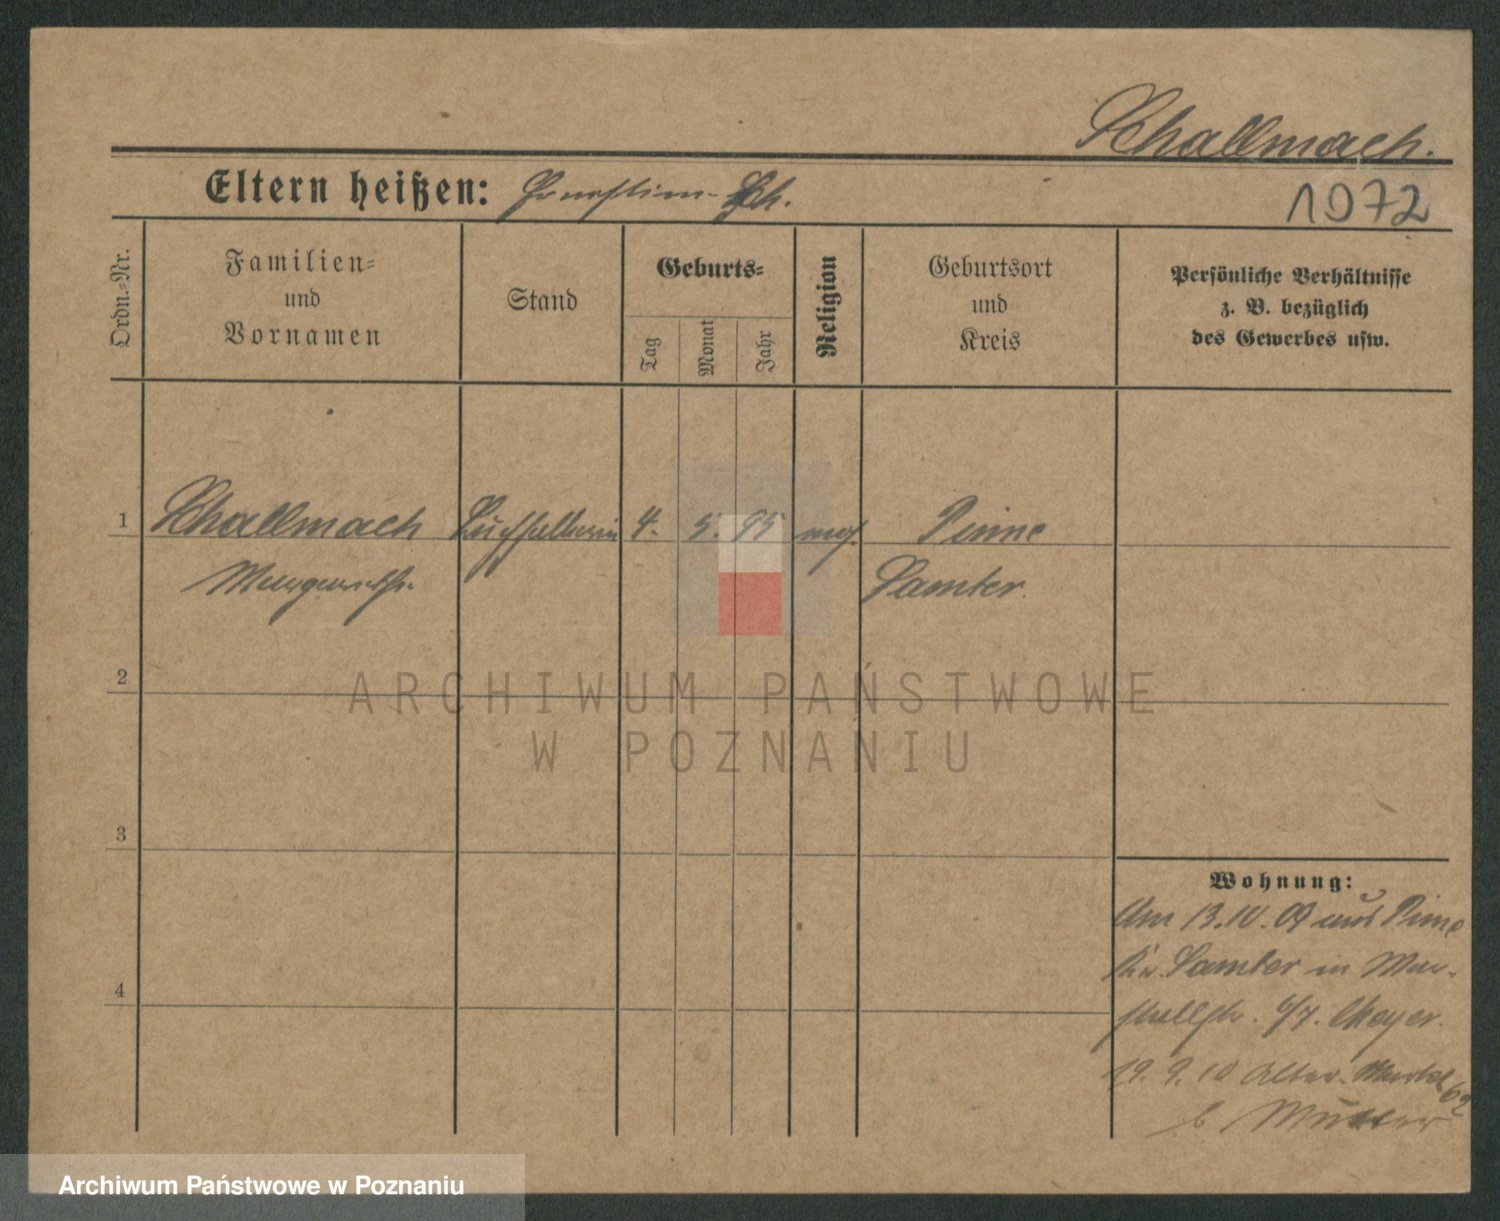 Schallmach.
Eltern heißen: Ernestine Sch.
1072
Ordn.-Nr.
Familien-
und
Vornamen
Stand
Geburts-
Tag
Monat
Jahr
Religion
Geburtsort
und
Kreis
Persönliche Verhältnisse
z. B. bezüglich
des Gewerbes usw.
1
Schallmach Buchhalterin 4. 5. 95 mos. Pinne
Margarethe Samter
2
3
4
Wohnung:
Am 13.10.09 aus Pinne
Kr. Samter in Mar-
stallstr. 6/7. Mayer.
19. 9. 10 Alter Markt 62
b Mutter
ARCHIWUM PAŃSTWOWE
W POZNANIU
Archiwum Państwowe w Poznaniu